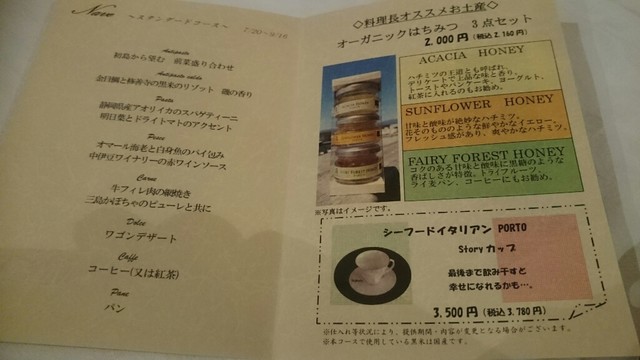 Nave
～スタンダードコース～
7/20～9/15
Antipasto
初島から望む 前菜盛り合わせ
Antipasto caldo
金目鯛と修善寺の黒米のリゾット 磯の香り
Pasta
静岡県産アオリイカのスパゲティーニ
明日葉とドライトマトのアクセント
Pesce
オマール海老と白身魚のパイ包み
中伊豆ワイナリーの赤ワインソース
Carne
牛フィレ肉の網焼き
三島かぼちゃのピューレと共に
Dolce
ワゴンデザート
Caffe
コーヒー(又は紅茶)
Pane
パン
◇料理長オススメお土産◇
オーガニックはちみつ 3点セット
2,000円(税込2,160円)
ACACIA HONEY
ハチミツの王道とも呼ばれ、
デリケートで上品な味と香り。
トーストやパンケーキ、ヨーグルト、
紅茶に入れるのもお勧め。
SUNFLOWER HONEY
甘味と酸味が絶妙なハチミツ。
花そのもののような鮮やかなイエロー。
フレッシュ感があり、爽やかなハチミツ。
FAIRY FOREST HONEY
コクのある甘味と酸味に黒糖のような
香ばしさが特徴。ドライフルーツ、
ライ麦パン、コーヒーにもお勧め。
※写真はイメージです。
シーフードイタリアン PORTO
Story カップ
最後まで飲み干すと
幸せになれるかも…。
3,500円(税込3,780円)
※仕入れ等状況により、提供期間・内容が変更となる場合がございます。
※本コースで使用している黒米は国産です。